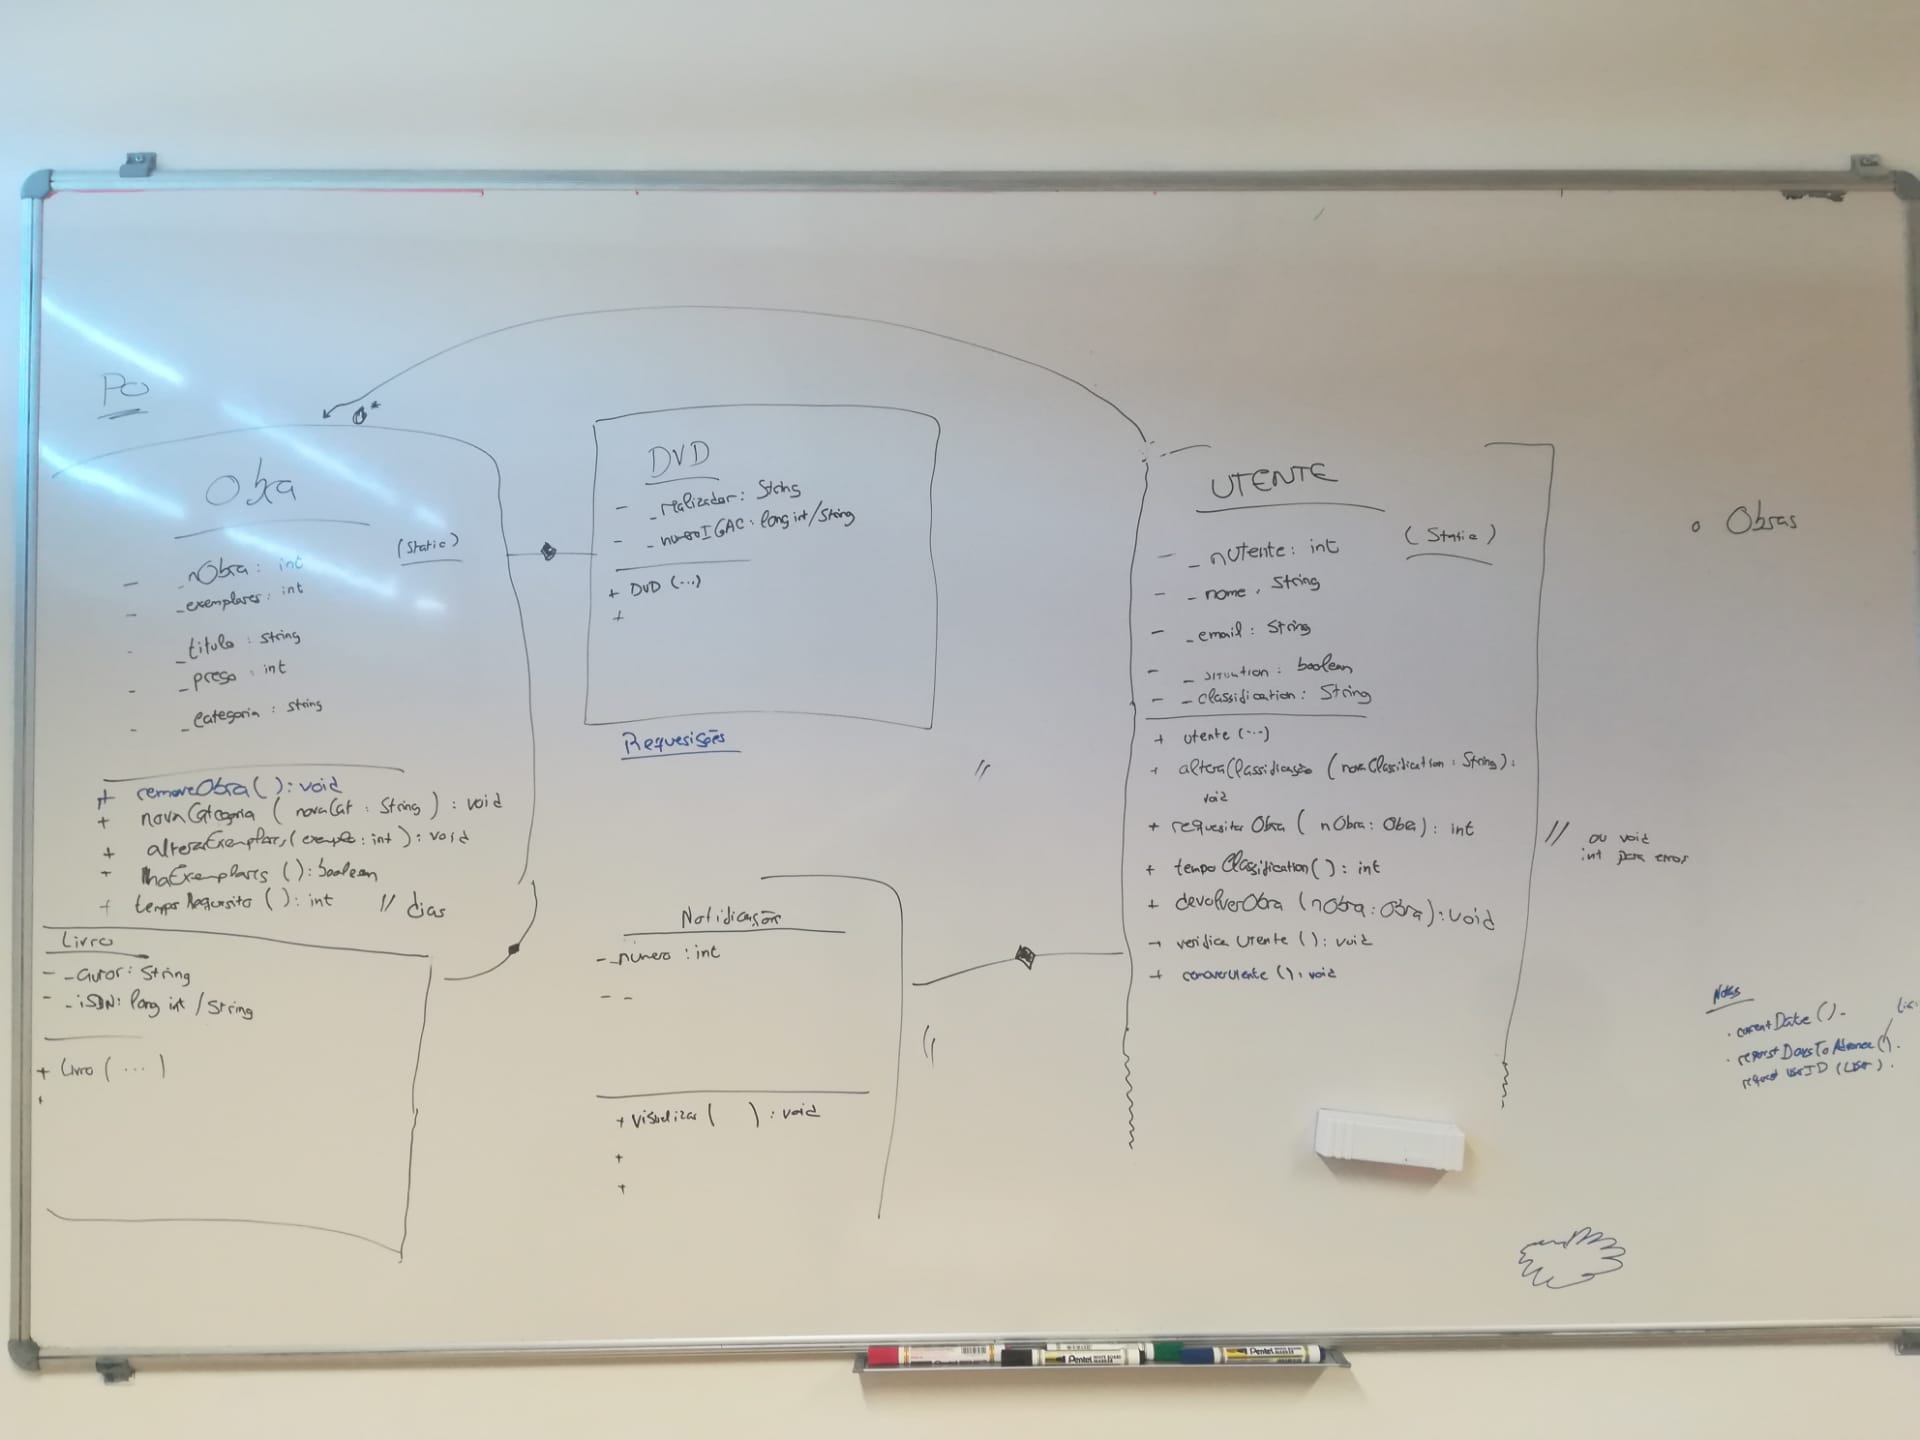 PO
0*
Obra
(Static)
- _nObra: int
- _exemplares: int
- _titulo: String
- _preço: int
- _categoria: String
+ removeObra(): void
+ novaCategoria (novaCat: String): void
+ alterarExemplares(exempla: int): void
+ haExemplares (): boolean
+ tempoRequisito (): int // dias
Livro
- _autor: String
- _iSBN: long int / String
+ Livro (...)
+
DVD
- _realizador: String
- _numeroIGAC: long int/String
+ DVD (...)
+
Requesições
//
Notificação
- _numero: int
- -
+ visualizar ( ): void
+
+
//
UTENTE
(Static)
- _nUtente: int
- _nome: String
- _email: String
- _situation: boolean
- _classification: String
+ utente (...)
+ alteraClassificação (novaClassification: String):
void
+ requesitar Obra (nObra: Obra): int
+ tempoClassification(): int
+ devolverObra (nObra: Obra): void
+ verifica Utente (): void
+ removerUtente (): void
// ou void
int para erros
o Obras
Notes
. currentDate().
. requestDaysToAdvance().
request userID (User).
Pentel
Pentel